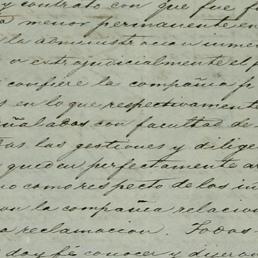 y contrato con que fue f
o menor permanente en
la administracion inme
o extrajudicialmente el p
confiere la compañia p
s en lo que respectivamente
eñalados con facultad de
tas las gestiones y dilige
queden perfectamente a
no como respecto de los in
on la compañia relacio
a reclamacion. Todos
doy fé conocer y dijeron